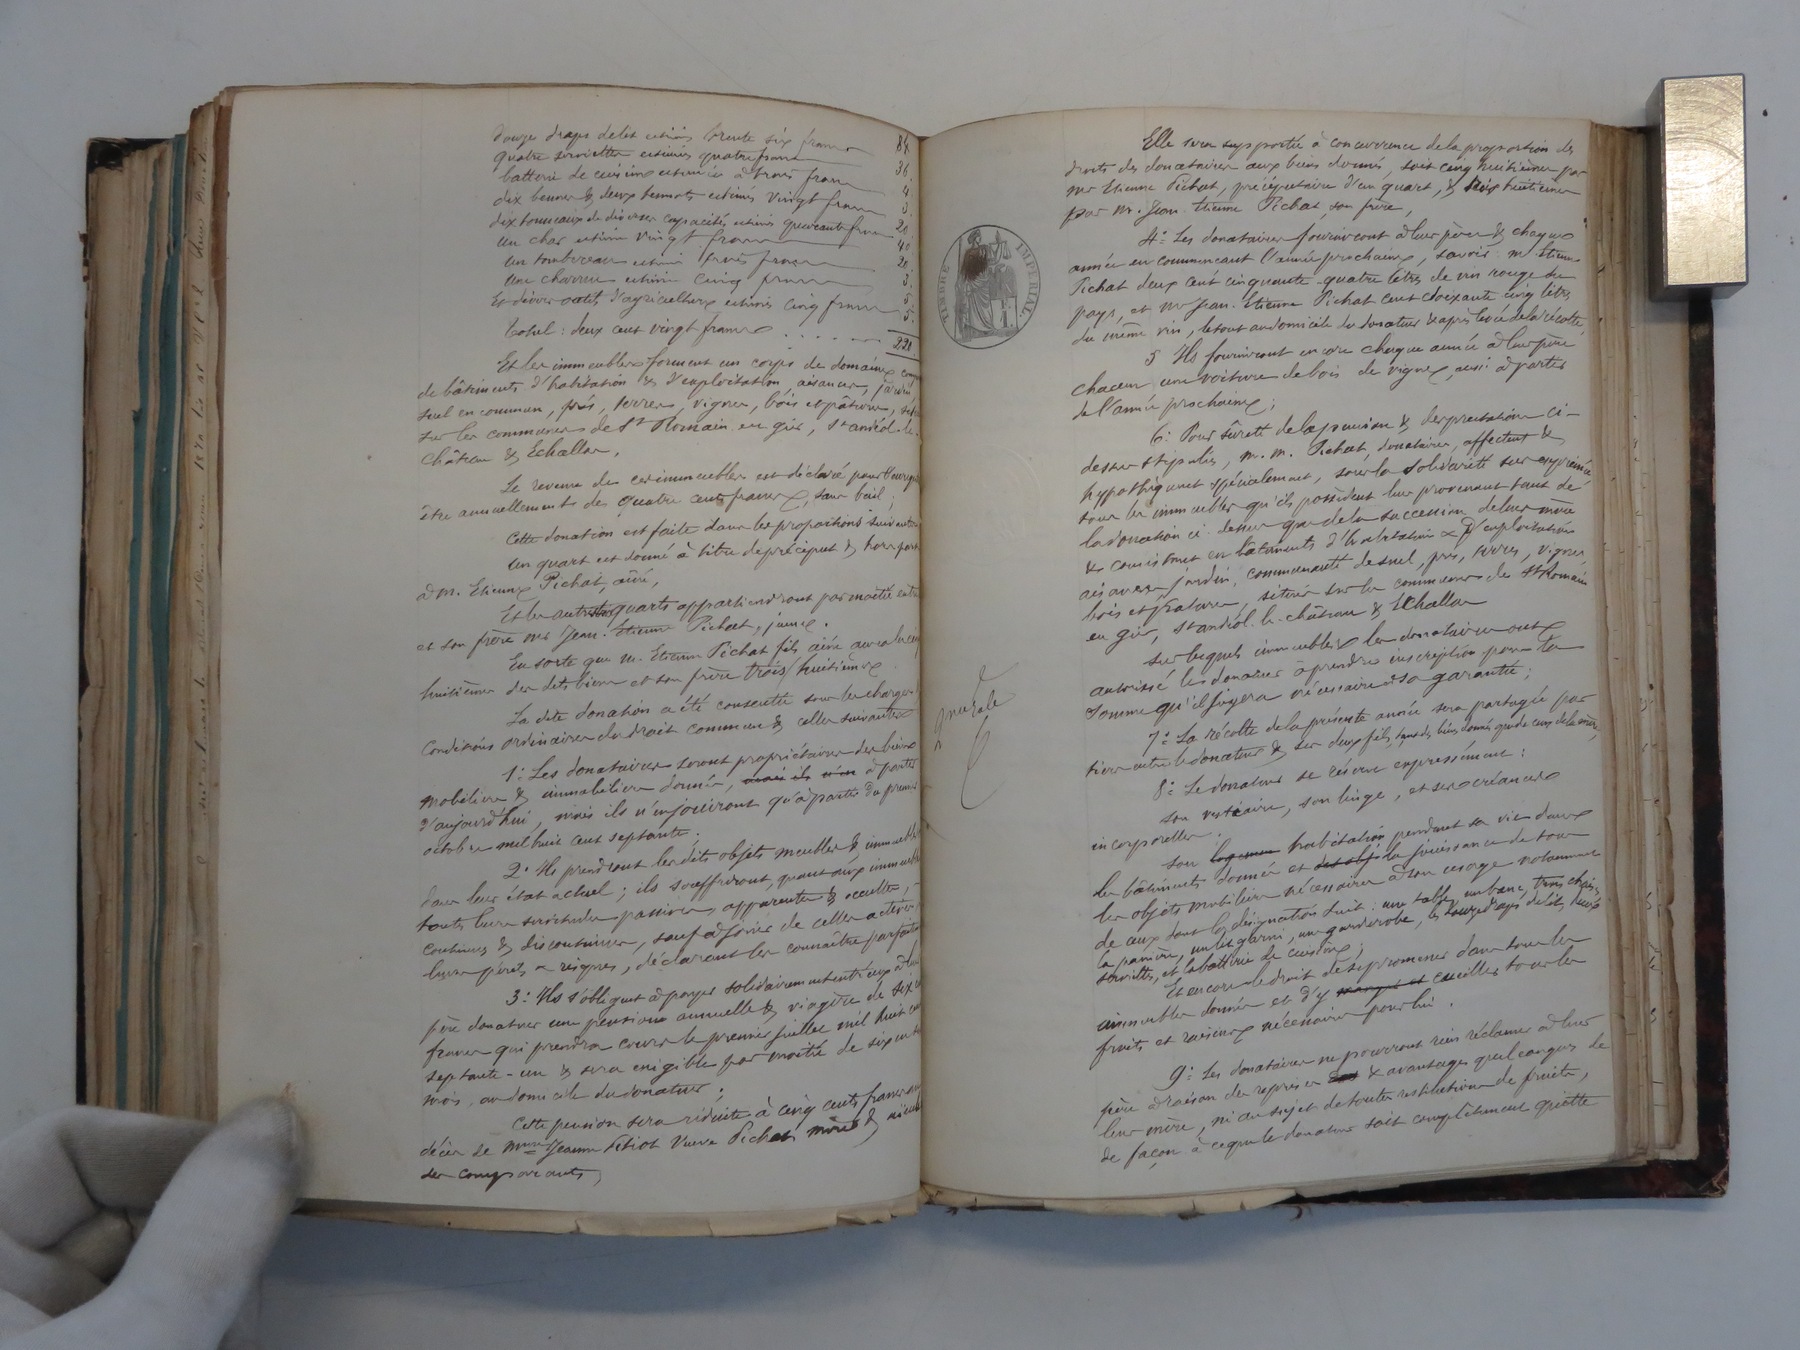 douze draps de lit estimés trente six francs 84
quatre serviettes estimées quatre francs 36.
batterie de cuisine estimée à trois francs 4.
dix bennes & deux bennots estimés vingt francs 3.
dix tonneaux de diverses capacités estimés quarante francs 20.
un char estimé vingt francs 40.
un tombereau estimé trois francs 20.
une charrue estimée cinq francs 3.
Et divers outils d'agriculture estimés cinq francs 5.
Total : deux cent vingt francs 5.
220
Et les immeubles forment un corps de domaine
de bâtiments d'habitation & d'exploitation, aisances, jardin
suel en commun, prés, terres, vignes, bois et pâtures,
sur les communes de St Romain en gier, St andéol-le-
château & Echallas,
Le revenu de ces immeubles est déclaré pour
être annuellement de quatre cents francs, sans bail ;
Cette donation est faite dans les proportions suivantes
un quart est donné à titre de préciput & hors part
à M. Etienne Pichat, aîné,
Et les autres quarts appartiendront par moitié entre
et son frère Mr Jean-Etienne Pichat, jeune.
En sorte que M. Etienne Pichat fils aîné aura les cinq
huitièmes des dits biens et son frère trois huitièmes
La dite donation a été consentie sous les charges
conditions ordinaires du droit commun & celles suivantes
1° Les donataires seront propriétaires des biens
mobiliers & immobiliers donnés, mais ils n'en à partir
d'aujourd'hui, mais ils n'en jouiront qu'à partir du premier
octobre mil huit cent septante.
2° Ils prendront les dits objets meubles & immeubles
dans leur état actuel ; ils souffriront, quant aux immeubles
toutes leurs servitudes passives, apparentes & occultes,
continues & discontinues, sauf à jouir de celles actives
leurs périls & risques, déclarant les connaître parfaitement
3° Ils s'obligent à payer solidairement entr'eux à leur
père donateur une pension annuelle & viagère de six
francs qui prendra cours le premier juillet mil huit cent
septante-un & sera exigible par moitié de six en six
mois, au domicile du donateur ;
Cette pension sera réduite à cinq cents francs au
décès de Mme Jeanne Pitiot Veuve Pichat mère &
des comparants,
TIMBRE IMPÉRIAL
Elle sera supportée à concurrence de la proportion des
droits des donataires aux biens donnés, soit cinq huitièmes par
Mr Etienne Pichat, préciputaire d'un quart, & trois huitièmes
par M. Jean-Etienne Pichat, son frère,
4° Les donataires fourniront à leur père & chaque
année en commençant l'année prochaine, savoir : M. Etienne
Pichat deux cent cinquante-quatre litres de vin rouge du
pays, et Mr Jean-Etienne Pichat cent soixante cinq litres
du même vin, le tout au domicile du donateur & après levée de la récolte,
5° Ils fourniront encore chaque année à leur père
chacun une voiture de bois de vigne, aussi à partir
de l'année prochaine ;
6° Pour sûreté de la pension & des prestations ci-
dessus stipulées, M. M. Pichat, donataires, affectent &
hypothèquent spécialement, sous la solidarité sus exprimée
tous les immeubles qu'ils possèdent leur provenant tant de
la donation ci-dessus que de la succession de leur mère
& consistant en bâtiments d'habitation & d'exploitation
aisances, jardin, communauté de suel, prés, terres, vignes,
bois et pâtures, situés sur les communes de St Romain
en gier, St andéol-le-château & Echallas
sur lesquels immeubles les donataires ont
autorisé le donateur à prendre inscription pour la
somme qu'il jugera nécessaire à sa garantie ;
7° La récolte de la présente année sera partagée par
tiers entre le donateur & ses deux fils, tant des biens donnés que de ceux de la mère
8° Le donateur se réserve expressément :
son vestiaire, son linge, et ses créances
incorporelles ;
son logement habitation pendant sa vie dans
les bâtiments donnés et des obj la jouissance de tous
les objets mobiliers nécessaires à son usage notamment
de ceux dont la désignation suit : une table, un banc, trois chaises
la panière, un lit garni, une garderobe, les douze draps de lit, deux
serviettes, et la batterie de cuisine ;
Et encore le droit de se promener dans tous les
immeubles donnés et d'y manger et cueillir tous les
fruits et raisins nécessaires pour lui.
9° Les donataires ne pourront rien réclamer à leur
père à raison des reprises & avantages quelconques de
leur mère, ni au sujet de toutes restitutions de fruits,
de façon à ce que le donateur soit complètement quitte